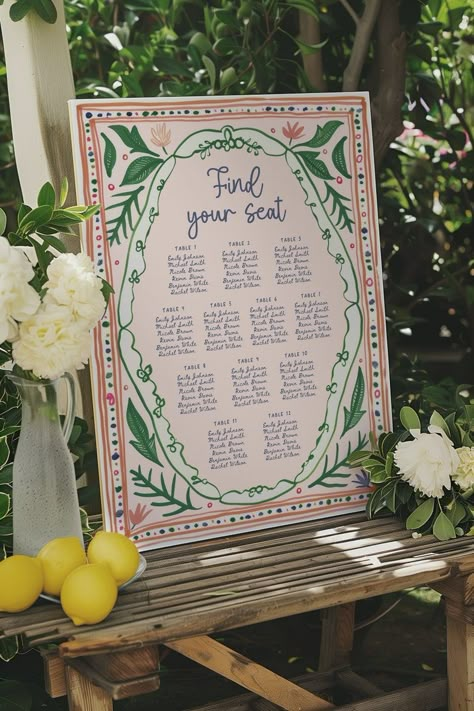 Find
your seat
TABLE 1
Emily Johnson
Michael Smith
Nicole Brown
Kevin Davis
Benjamin White
Rachel Wilson
TABLE 2
Emily Johnson
Michael Smith
Nicole Brown
Kevin Davis
Benjamin White
Rachel Wilson
TABLE 3
Emily Johnson
Michael Smith
Nicole Brown
Kevin Davis
Benjamin White
Rachel Wilson
TABLE 5
Emily Johnson
Michael Smith
Nicole Brown
Kevin Davis
Benjamin White
Rachel Wilson
TABLE 5
Emily Johnson
Michael Smith
Nicole Brown
Kevin Davis
Benjamin White
Rachel Wilson
TABLE 6
Emily Johnson
Michael Smith
Nicole Brown
Kevin Davis
Benjamin White
Rachel Wilson
TABLE 7
Emily Johnson
Michael Smith
Nicole Brown
Kevin Davis
Benjamin White
Rachel Wilson
TABLE 8
Emily Johnson
Michael Smith
Nicole Brown
Kevin Davis
Benjamin White
Rachel Wilson
TABLE 9
Emily Johnson
Michael Smith
Nicole Brown
Kevin Davis
Benjamin White
Rachel Wilson
TABLE 10
Emily Johnson
Michael Smith
Nicole Brown
Kevin Davis
Benjamin White
Rachel Wilson
TABLE 11
Emily Johnson
Michael Smith
Nicole Brown
Kevin Davis
Benjamin White
Rachel Wilson
TABLE 12
Emily Johnson
Michael Smith
Nicole Brown
Kevin Davis
Benjamin White
Rachel Wilson